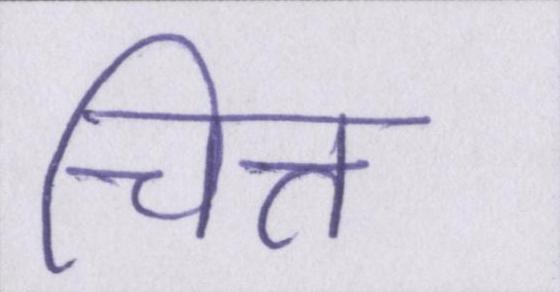 चित्त